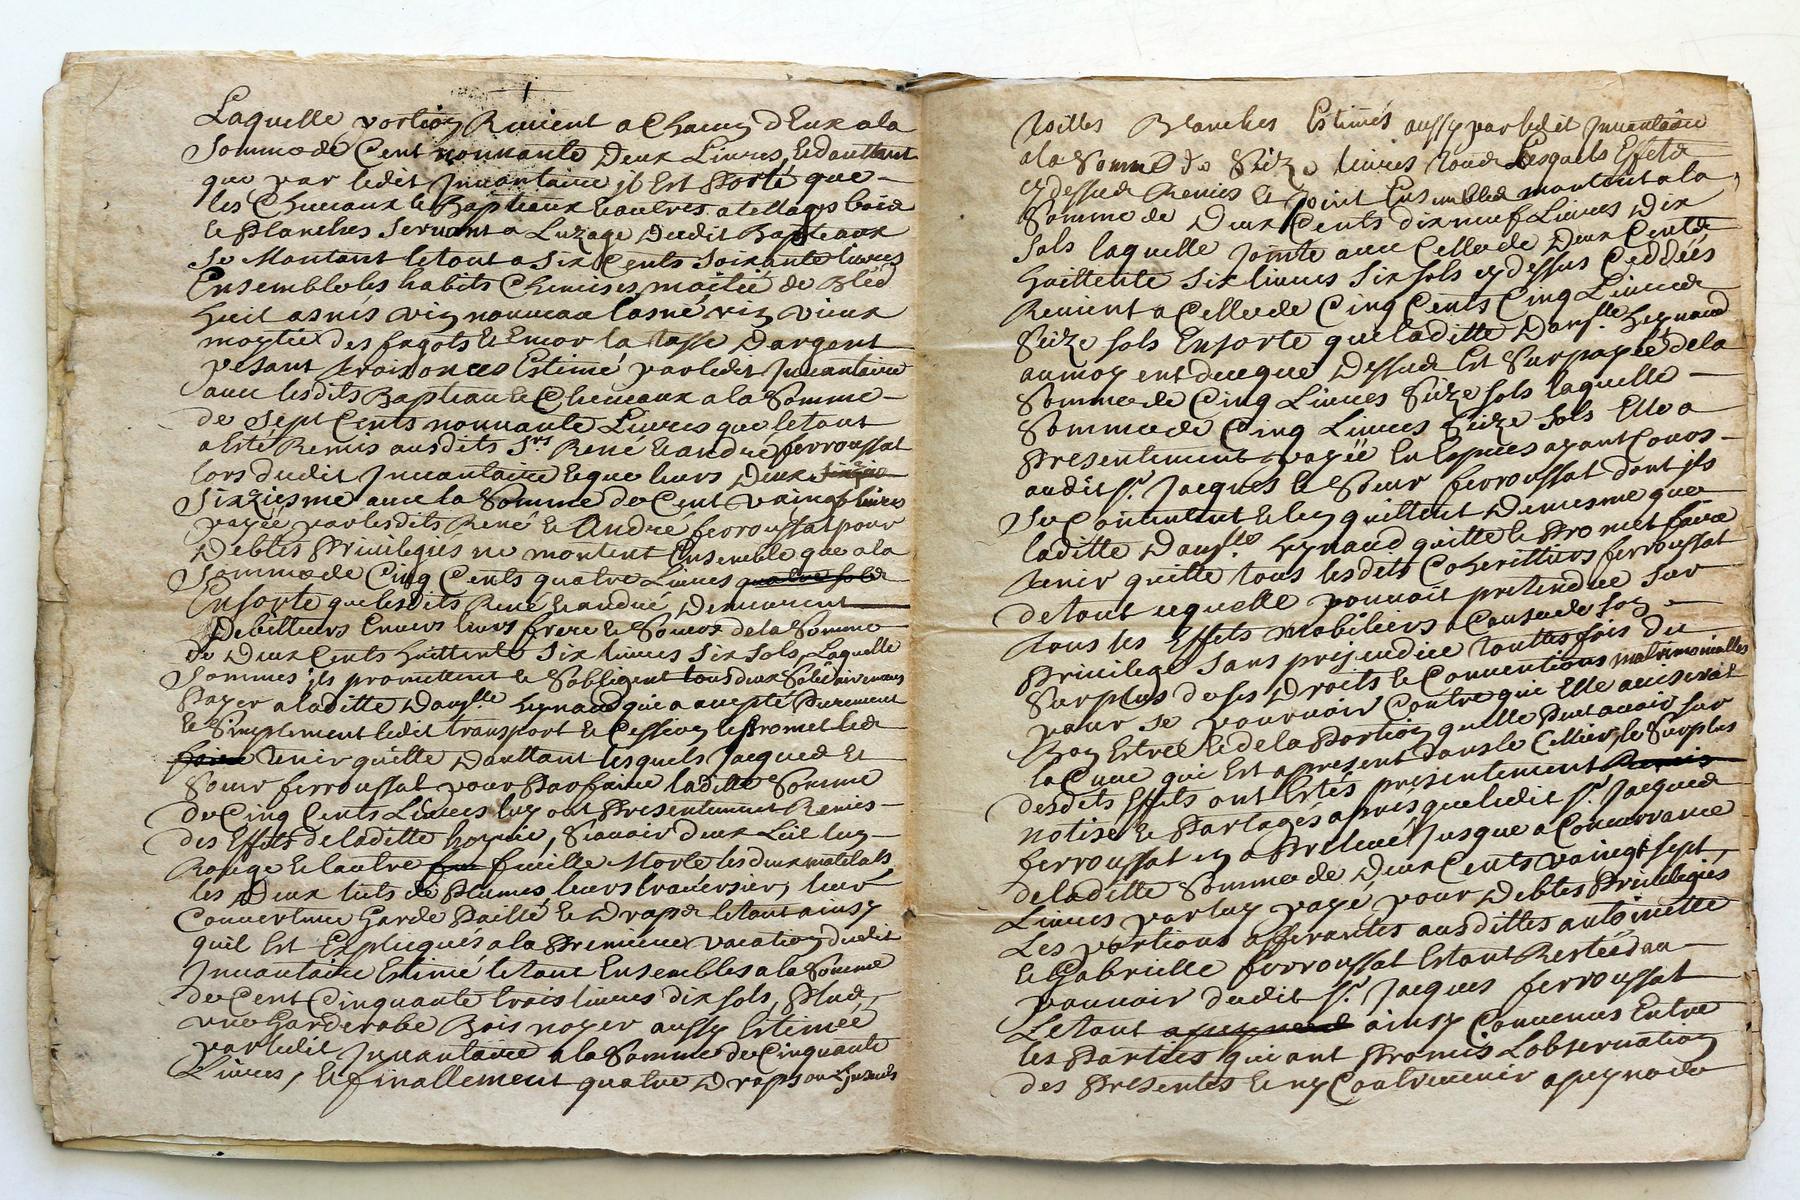 Laquelle portion Revient a Chacun d'Eux a la
Somme de Cent nonnante Deux Livres, Et dauttant
que par ledit Inuantaire il Est Porté que
les Cheuaux le Bapteaux Et autres atellages bois
Et Planches Seruant a Luzage Desdit Bapteaux
Se Montant le tout a Six Cents Soixante liures
Ensemble les habits Chemises, moitié de Bled
huit asnés vin nouueau lasné vin vieux
moytié des fagots Et Encor la tasse Dargent
pesant trois onces Estimé par ledit Inuantaire
auec lesdits Bapteau Et Cheueaux a la Somme
de Sept Cents nonnante Liures que le tout
a Esté Remis ausdits Srs René Et andré ferroussat
lors dudit Inuantaire Et que leurs Deux
Sixziesme auec la Somme de Cent vaingt liures
payée par lesdits René Et André ferroussat pour
Debtes Priuilegiés ne montent Ensemble que a la
Somme de Cinq Cents quatre Liures quatre Sols
En sorte que lesdits René Et andré Demeurent
Debitteurs Enuers leurs frere Et Sœurs de la Somme
de Deux Cents huittente Six liures Six Sols, Laquelle
Sommes ils promettent Et Sobligent tous deux Solidairement
Payer a laditte Dauslle Heynaud qui a accepté Purement
Et Simplement ledit transport Et Cession Et Promet les
faire tenir quitte Dauttant lesquels Jacques Et
Sœur ferroussat pour Parfaire laditte Somme
de Cinq Cents Liures luy ont Presentement Remis
des Effets de laditte hoyrie, Scauoir deux Lit luy
Rouge Et lautre feuille Morte les deux matelats
les Deux lits de Plumes, leurs trauersier, leur
Couuerture Garde Paille Et Draps le tout ainsy
quil Est Expliqués a la Premiere vacation dudit
Inuantaire Estimé le tout Ensembles a la Somme
de Cent Cinquante trois liures dix Sols, Plus,
vne Garderobe Bois noyer aussy Estimée
par ledit Inuantaire a la Somme de Cinquante
Liures, Et finallement quatre Draps ou
toilles Blanches Estimés aussy par ledit Inuentaire
a la Somme de Seize liures tous Lesquels Effets
cy dessus Remis Et Joint Ensembles montent a la
Somme de Deux Cents dix neuf Liures Dix
Sols laquelle Jointe auec Celle de Deux Cents
huittente Six liures Six sols cy dessus Ceddées
Reuient a Celle de Cinq Cents Cinq Liures
Seize sols En sorte que laditte Dauslle Heynaud
au moyent de ce que Dessus Est Surpayée de la
Somme de Cinq Liures Seize sols laquelle
Somme de Cinq Liures Seize Sols Elle a
Presentement payée En Especes ayant Cours
audit Sr Jacques Et Sœur ferroussat dont ils
Se Contentent Et len quittent De mesme que
laditte Dauslle Heynaud quitte Et Promet faire
tenir quitte tous lesdits Coherittiers ferroussat
de tout ce quelle pouuoit pretendre Sur
tous les Effets Mobiliers a Cause de Son
Priuilege Sans prejudice touttesfois du
Surplus de ses Droits Et Conuentions matrimonialles
pour Se pouruoir Contre qui Elle auiserat
Bon Estre Et de la Portion quelle Peut auoir sur
la Cuue qui Est a present dans le Cellier, le Surplus
desdits Effets ont Estés presentement Remis
Et Partagés apres que ledit Sr Jacques
ferroussat en a Preleué Jusque a Concurrance
de laditte Somme de Deux Cents vaingt sept
Liures par luy payé pour Debtes Priuilegiés
Les portions afferantes ausdittes antoinette
Et Gabrielle ferroussat Estant Restée au
pouuoir dudit Sr Jacques ferroussat
Le tout ainsy Conuenus Entre
les Parties qui ont Promis Lobseruation
des Presentes Et ny Contreuenir a peyne de